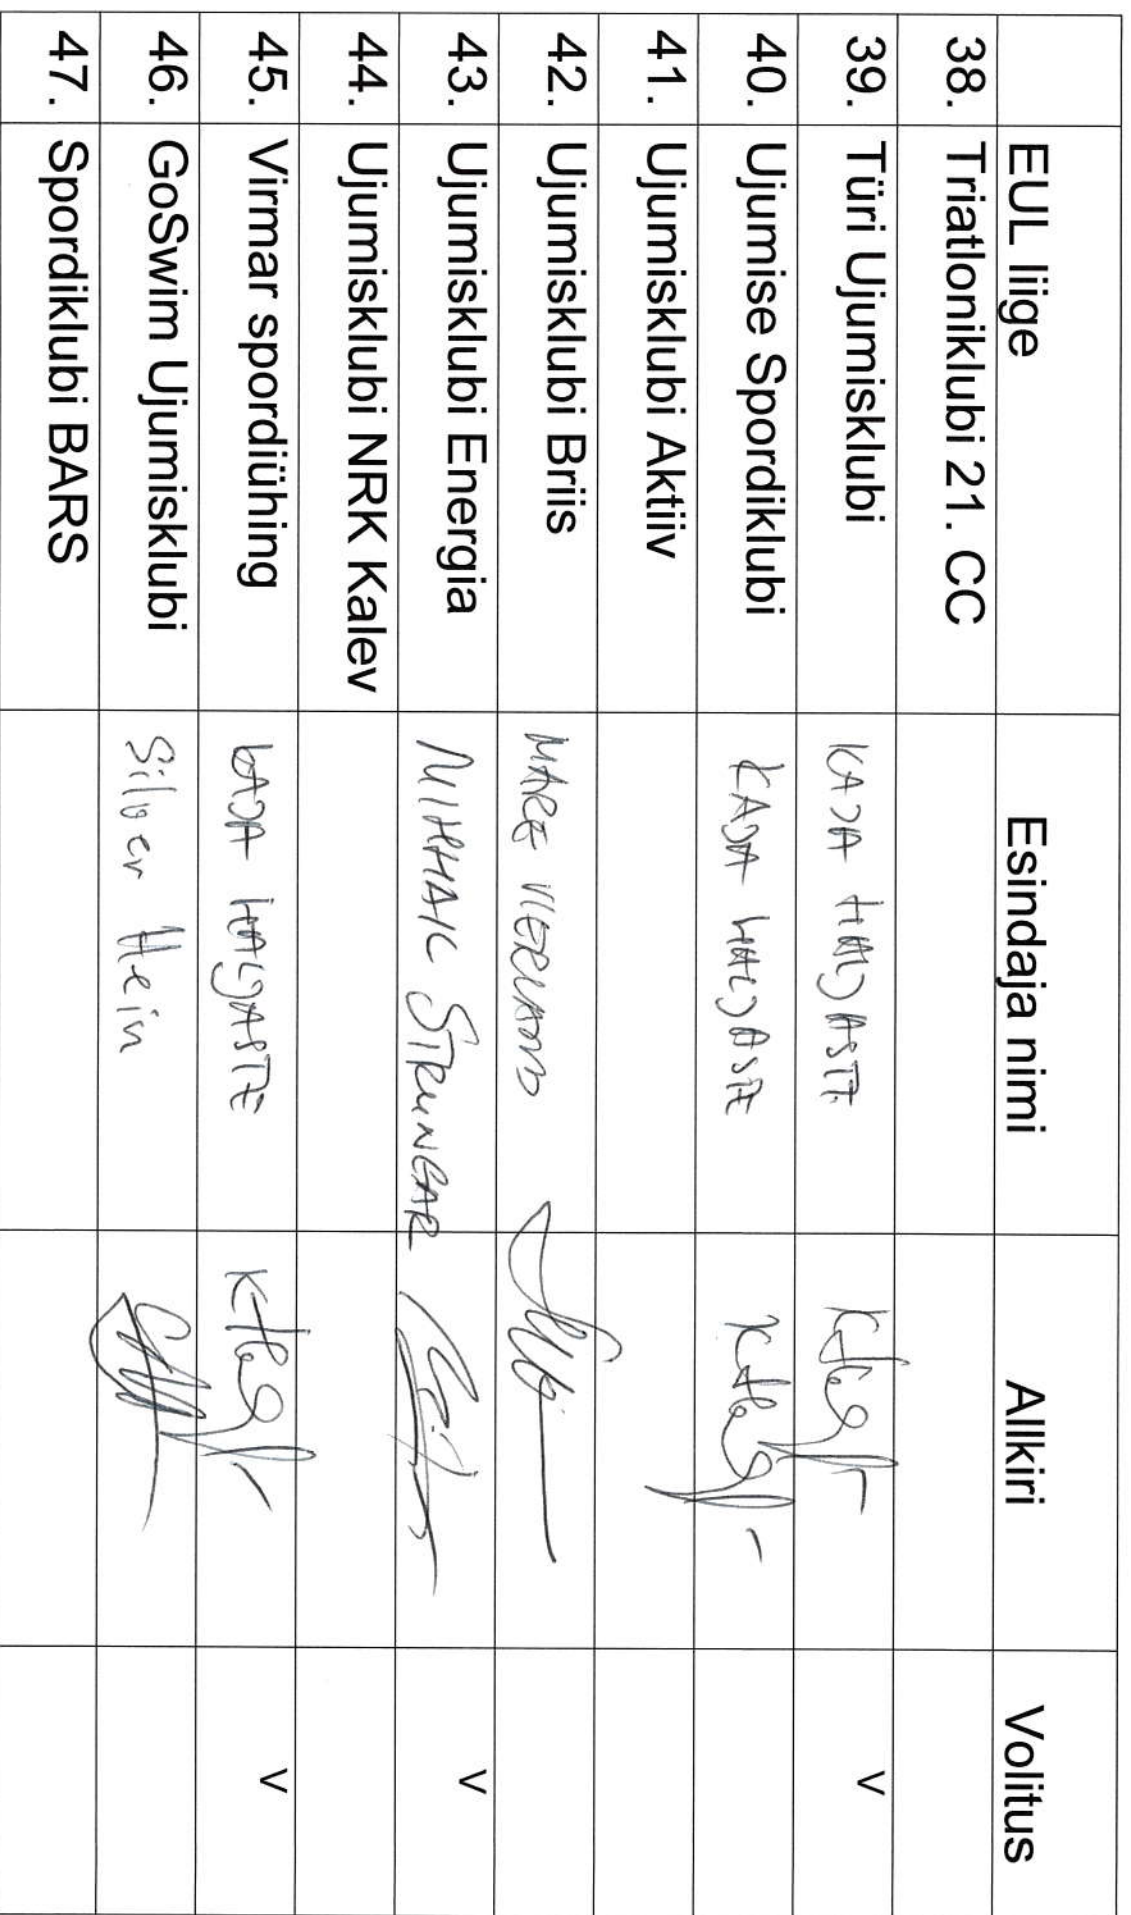 EUL liige Esindaja nimi Allkiri Volitus
38. Triatloniklubi 21. CC
39. Türi Ujumisklubi KAJA HALJASTE v
40. Ujumise Spordiklubi KAJA HALJASTE
41. Ujumisklubi Aktiiv
42. Ujumisklubi Briis MARE
43. Ujumisklubi Energia MIHHAIL STRUNGAR v
44. Ujumisklubi NRK Kalev
45. Virmar spordiühing KAJA HALJASTE v
46. GoSwim Ujumisklubi Silver Hein
47. Spordiklubi BARS